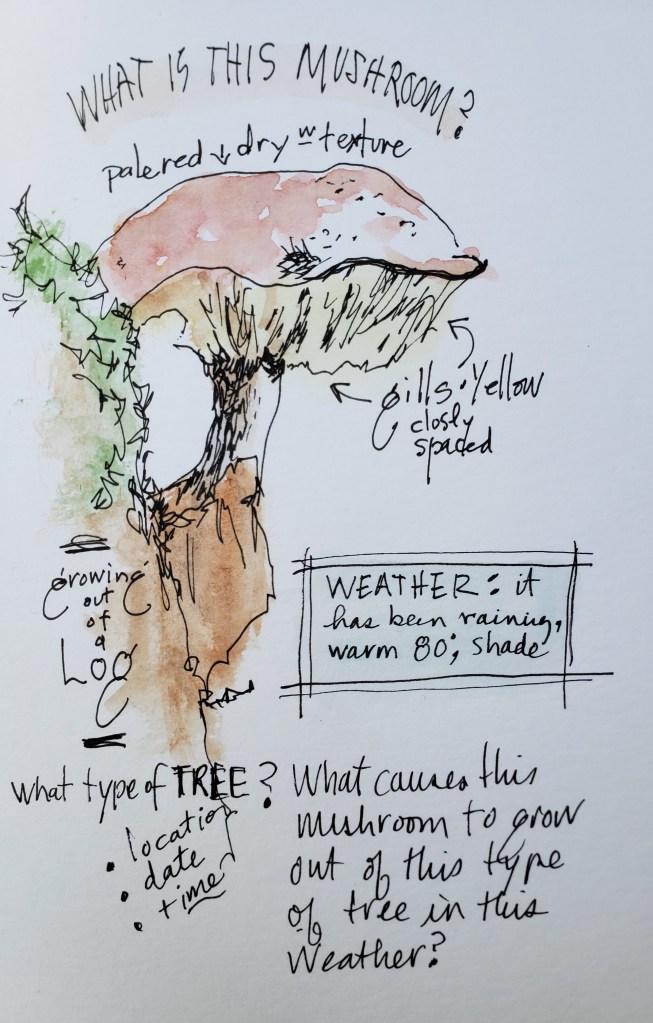 WHAT IS THIS MUSHROOM?
pale red + dry w texture
gills · Yellow
closly
spaced
Growing
out
of
a
LOG
WEATHER: it
has been raining,
warm 80°, shade
What type of TREE?
• location
• date
• time
What causes this
mushroom to grow
out of this type
of tree in this
Weather?